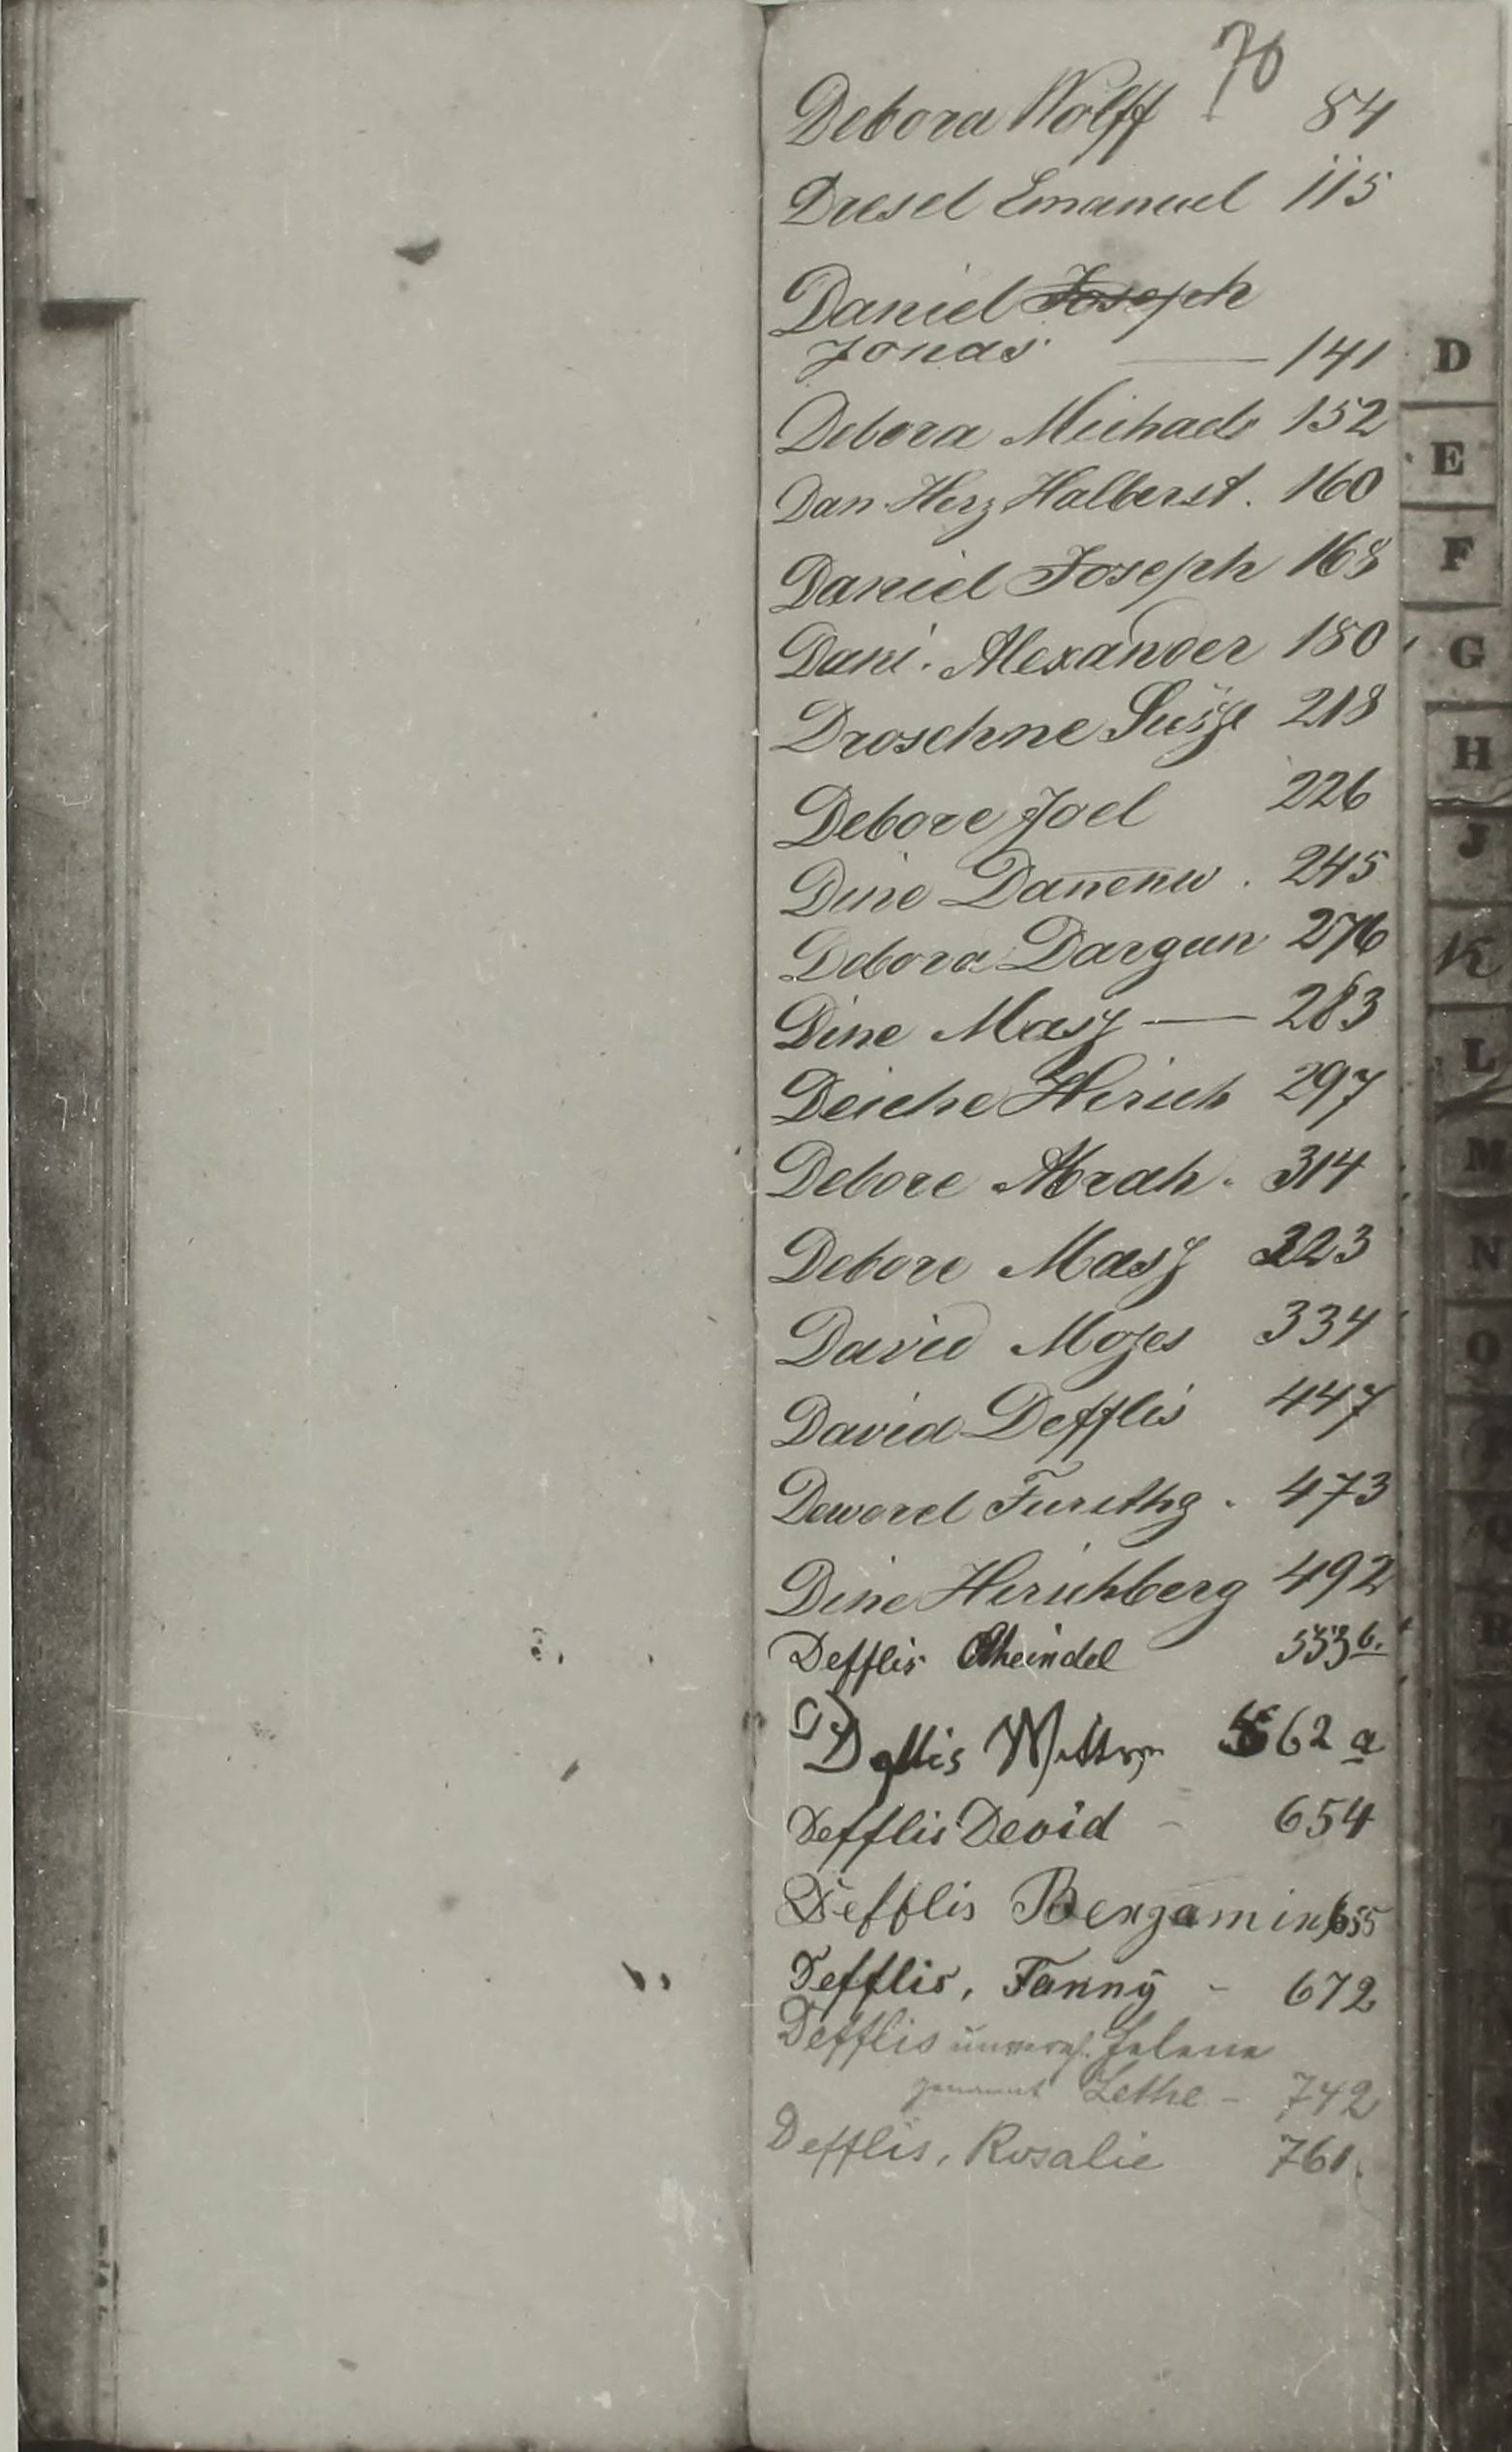 70
Debora Wolff 84
Dresel Emanuel 115
Daniel Joseph
Jonas — 141
Debora Michaels 152
Dan Herz Halberst. 160
Daniel Joseph 168
Dani. Alexander 180
Droschne Süsze 218
Debore Joel 226
Dine Danenw. 245
Debora Dargun 276
Dine Masz — 283
Deiche Hirsch 297
Debore Abrah. 314
Debore Masz 323
David Moses 334
David Defflis 447
Deworel Fursthg. 473
Dine Hirschberg 492
Defflis Rheindel 553 b.
Defflis 562 a
Defflis David - 654
Defflis Benjamin 655
Defflis, Fanny - 672
Defflis unvereh. Helene
genannt Lethe - 742
Defflis, Rosalie 761.
D
E
F
G
H
J
K
L
M
N
O
R